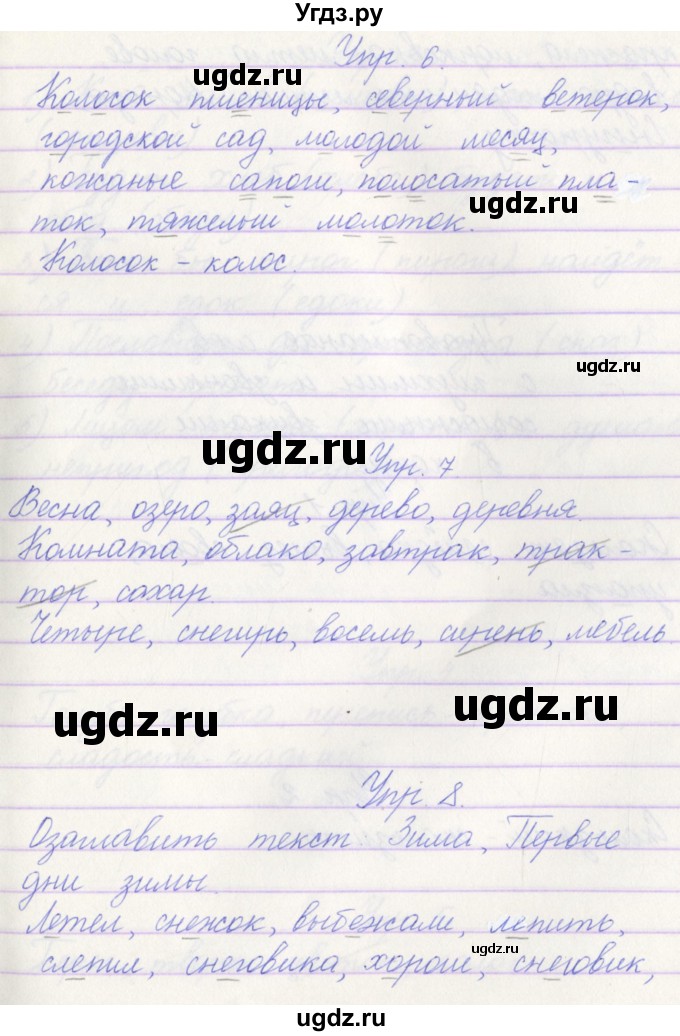 Угдз.ру
Упр. 6.
ugdz.ru
Колосок пшеницы, северный ветерок,
городской сад, молодой месяц,
кожаные сапоги, полосатый пла-
ugdz.ru
ток, тяжелый молоток.
Колосок - колос.
ugdz.ru
ugdz.ru
Упр. 7
Весна, озеро, заяц, дерево, деревня.
Комната, облако, завтрак, трак-
тор, сахар.
Четыре, снегирь, восемь, сирень, мебель.
ugdz.ru
ugdz.ru
Упр. 8.
Озаглавить текст Зима, Первые
дни зимы.
Летел, снежок, выбежали, лепить,
ugdz.ru
слепил, снеговика, хорош, снеговик,
ugdz.ru